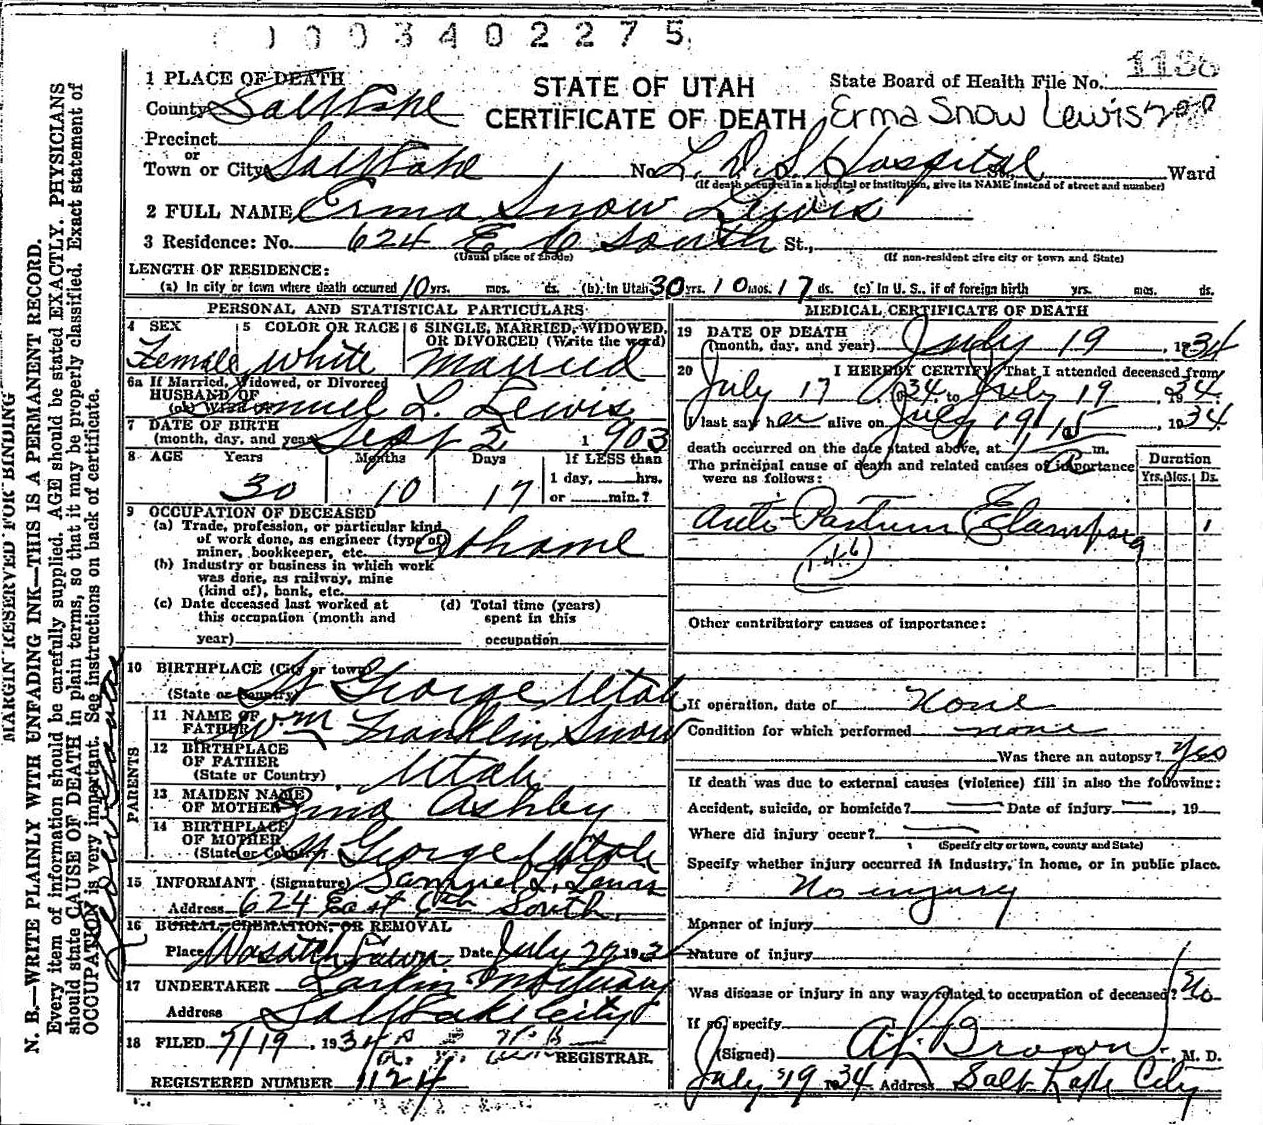 1003402275
1 PLACE OF DEATH
County Salt Lake
Precinct
or
Town or City Salt Lake
STATE OF UTAH
CERTIFICATE OF DEATH
State Board of Health File No. 1136
Erma Snow Lewis
No. L. D. S. Hospital St., Ward
(If death occurred in a hospital or institution, give its NAME instead of street and number)
2 FULL NAME Erma Snow Lewis
3 Residence: No. 624 E 6 South St.,
(Usual place of abode) (If non-resident give city or town and State)
LENGTH OF RESIDENCE:
(a) In city or town where death occurred 10 yrs. mos. ds. (b) In Utah 30 yrs. 10 mos. 17 ds. (c) In U. S., if of foreign birth yrs. mos. ds.
PERSONAL AND STATISTICAL PARTICULARS
4 SEX 5 COLOR OR RACE 6 SINGLE, MARRIED, WIDOWED, OR DIVORCED (Write the word)
Female White Married
6a If Married, Widowed, or Divorced
HUSBAND OF
(or) WIFE OF Samuel L. Lewis
7 DATE OF BIRTH
(month, day, and year) Sept 2 1903
8 AGE Years Months Days If LESS than
30 10 17 1 day, hrs.
or min.?
9 OCCUPATION OF DECEASED
(a) Trade, profession, or particular kind
of work done, as engineer (type of)
miner, bookkeeper, etc. At home
(b) Industry or business in which work
was done, as railway, mine
(kind of), bank, etc.
(c) Date deceased last worked at
this occupation (month and
year)
(d) Total time (years)
spent in this
occupation
10 BIRTHPLACE (City or town)
(State or Country) St George Utah
PARENTS
11 NAME OF
FATHER Wm Franklin Snow
12 BIRTHPLACE
OF FATHER
(State or Country) Utah
13 MAIDEN NAME
OF MOTHER Ashby
14 BIRTHPLACE
OF MOTHER
(State or Country) St George Utah
15 INFORMANT (Signature) Samuel L. Lewis
Address 624 East 6th South
16 BURIAL, CREMATION, OR REMOVAL
Place Wasatch Lawn Date July 22 1934
17 UNDERTAKER Larkin Mortuary
Address Salt Lake City
18 FILED 7/19, 1934
REGISTRAR.
REGISTERED NUMBER 1124
MEDICAL CERTIFICATE OF DEATH
19 DATE OF DEATH
(month, day, and year) July 19, 1934
20 I HEREBY CERTIFY, That I attended deceased from
July 17 1934 to July 19 1934
I last saw her alive on July 19, 1934
death occurred on the date stated above, at m.
The principal cause of death and related causes of importance
were as follows:
Duration
Yrs. Mos. Ds.
Anti Partum Eclampsia 1
146
Other contributory causes of importance:
If operation, date of None
Condition for which performed none
Was there an autopsy? Yes
If death was due to external causes (violence) fill in also the following:
Accident, suicide, or homicide? Date of injury , 19
Where did injury occur?
(Specify city or town, county and State)
Specify whether injury occurred in industry, in home, or in public place.
No injury
Manner of injury
Nature of injury
Was disease or injury in any way related to occupation of deceased? No
If so, specify
(Signed) Brown, M. D.
July 19 1934 Address Salt Lake City
MARGIN RESERVED FOR BINDING
N. B.—WRITE PLAINLY WITH UNFADING INK—THIS IS A PERMANENT RECORD.
Every item of information should be carefully supplied. AGE should be stated EXACTLY. PHYSICIANS
should state CAUSE OF DEATH in plain terms, so that it may be properly classified. Exact statement of
OCCUPATION is very important. See instructions on back of certificate.